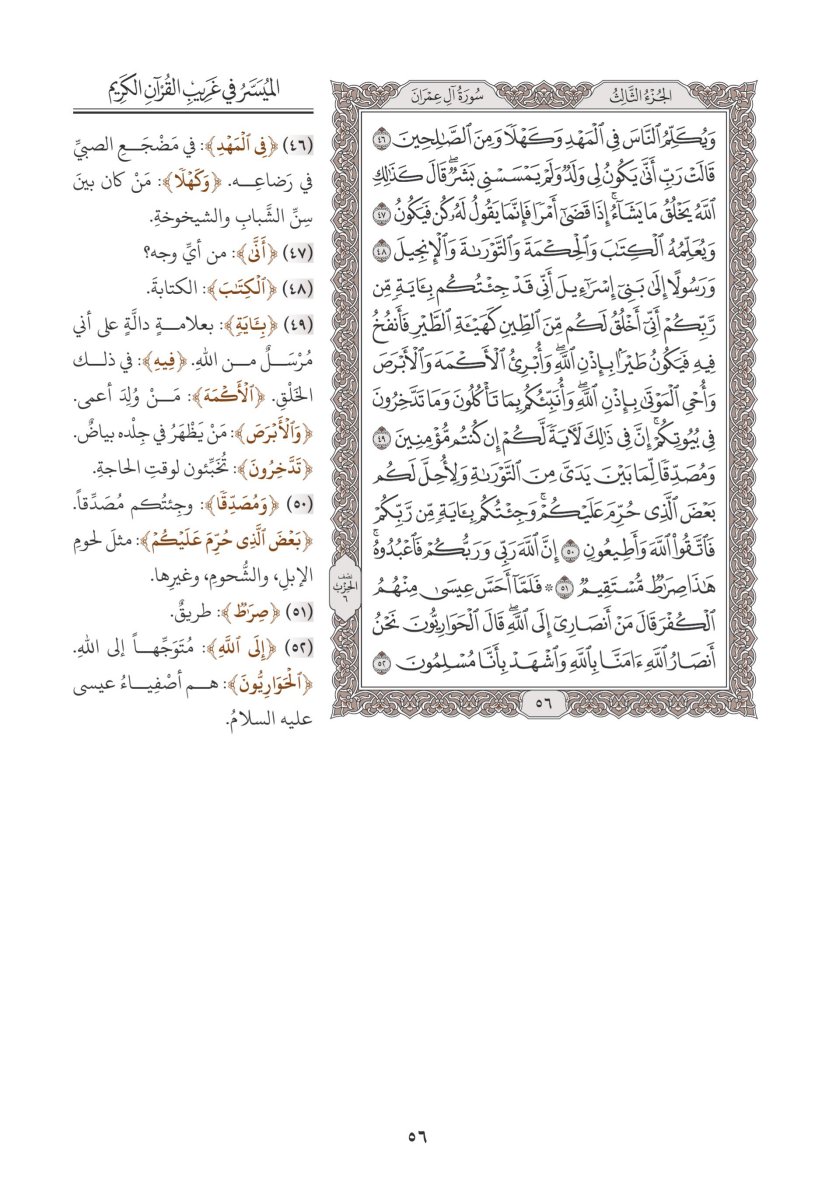 الجُزْءُ الثَّالِثُ
سُورَةُ آلِ عِمْرَانَ
وَيُكَلِّمُ ٱلنَّاسَ فِي ٱلۡمَهۡدِ وَكَهۡلٗا وَمِنَ ٱلصَّٰلِحِينَ ٤٦
قَالَتۡ رَبِّ أَنَّىٰ يَكُونُ لِي وَلَدٞ وَلَمۡ يَمۡسَسۡنِي بَشَرٞۖ قَالَ كَذَٰلِكِ
ٱللَّهُ يَخۡلُقُ مَا يَشَآءُۚ إِذَا قَضَىٰٓ أَمۡرٗا فَإِنَّمَا يَقُولُ لَهُۥ كُن فَيَكُونُ ٤٧
وَيُعَلِّمُهُ ٱلۡكِتَٰبَ وَٱلۡحِكۡمَةَ وَٱلتَّوۡرَىٰةَ وَٱلۡإِنجِيلَ ٤٨
وَرَسُولًا إِلَىٰ بَنِيٓ إِسۡرَٰٓءِيلَ أَنِّي قَدۡ جِئۡتُكُم بِـَٔايَةٖ مِّن
رَّبِّكُمۡ أَنِّيٓ أَخۡلُقُ لَكُم مِّنَ ٱلطِّينِ كَهَيۡـَٔةِ ٱلطَّيۡرِ فَأَنفُخُ
فِيهِ فَيَكُونُ طَيۡرَۢا بِإِذۡنِ ٱللَّهِۖ وَأُبۡرِئُ ٱلۡأَكۡمَهَ وَٱلۡأَبۡرَصَ
وَأُحۡيِ ٱلۡمَوۡتَىٰ بِإِذۡنِ ٱللَّهِۖ وَأُنَبِّئُكُم بِمَا تَأۡكُلُونَ وَمَا تَدَّخِرُونَ
فِي بُيُوتِكُمۡۚ إِنَّ فِي ذَٰلِكَ لَأٓيَةٗ لَّكُمۡ إِن كُنتُم مُّؤۡمِنِينَ ٤٩
وَمُصَدِّقٗا لِّمَا بَيۡنَ يَدَيَّ مِنَ ٱلتَّوۡرَىٰةِ وَلِأُحِلَّ لَكُم
بَعۡضَ ٱلَّذِي حُرِّمَ عَلَيۡكُمۡۚ وَجِئۡتُكُم بِـَٔايَةٖ مِّن رَّبِّكُمۡ
فَٱتَّقُواْ ٱللَّهَ وَأَطِيعُونِ ٥٠ إِنَّ ٱللَّهَ رَبِّي وَرَبُّكُمۡ فَٱعۡبُدُوهُۚ
هَٰذَا صِرَٰطٞ مُّسۡتَقِيمٞ ٥١ ۞ فَلَمَّآ أَحَسَّ عِيسَىٰ مِنۡهُمُ
ٱلۡكُفۡرَ قَالَ مَنۡ أَنصَارِيٓ إِلَى ٱللَّهِۖ قَالَ ٱلۡحَوَارِيُّونَ نَحۡنُ
أَنصَارُ ٱللَّهِ ءَامَنَّا بِٱللَّهِ وَٱشۡهَدۡ بِأَنَّا مُسۡلِمُونَ ٥٢
نصف
الحزب
٦
٥٦
المُيَسَّرُ في غَرِيبِ القُرْآنِ الكَرِيمِ
(٤٦) ﴿فِي ٱلۡمَهۡدِ﴾: في مَضْجَعِ الصبيِّ
في رَضاعِه. ﴿وَكَهۡلٗا﴾: مَنْ كان بينَ
سِنِّ الشَّبابِ والشيخوخةِ.
(٤٧) ﴿أَنَّىٰ﴾: من أيِّ وجه؟
(٤٨) ﴿ٱلۡكِتَٰبَ﴾: الكتابةَ.
(٤٩) ﴿بِـَٔايَةٖ﴾: بعلامةٍ دالَّةٍ على أني
مُرْسَلٌ من اللهِ. ﴿فِيهِ﴾: في ذلك
الخَلْقِ. ﴿ٱلۡأَكۡمَهَ﴾: مَنْ وُلِدَ أعمى.
﴿وَٱلۡأَبۡرَصَ﴾: مَنْ يَظْهَرُ في جِلْده بياضٌ.
﴿تَدَّخِرُونَ﴾: تُخَبِّئون لوقتِ الحاجةِ.
(٥٠) ﴿وَمُصَدِّقٗا﴾: وجِئتُكم مُصَدِّقاً.
﴿بَعۡضَ ٱلَّذِي حُرِّمَ عَلَيۡكُمۡ﴾: مثلَ لحومِ
الإبلِ، والشُّحومِ، وغيرِها.
(٥١) ﴿صِرَٰطٞ﴾: طريقٌ.
(٥٢) ﴿إِلَى ٱللَّهِ﴾: مُتَوَجِّهاً إلى اللهِ.
﴿ٱلۡحَوَارِيُّونَ﴾: هم أصْفِياءُ عيسى
عليه السلامُ.
٥٦